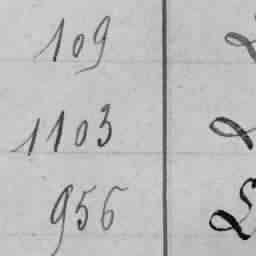 109
1103
956